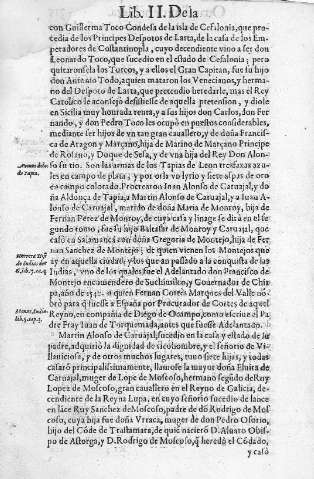 Lib. II. De la
con Guillerma Toco Condesa de la isla de Cefalonia, que procedia
de los Principes Despotos de Larta, de la casa de los Emperadores
de Costantinopla, cuyo decendiente vino a ser don
Leonardo Toco, que sucedio en el estado de Cefalonia; pero
quitaronsela los Turcos, y a ellos el Gran Capitan, fue su hijo
don Antonio Todo, aquien mataron los Venecianos, y hermano
del Despoto de Larta, que pretendio heredarle, mas el Rey
Catolico le aconsejo desistiesse de aquella pretension, y diole
en Sicilia muy honrada renta, y a sus hijos don Carlos, don Fernando,
y don Pedro Toco les ocupò en puestos considerables,
mediante ser hijos de vn tan gran cauallero, y de doña Francisca
de Aragon y Marçano, hija de Marino de Marçano Principe
de Rosano, y Duque de Sesa, y de vna hija del Rey don Alonso
su tio. Son las armas de los Tapias de Leon tres faxas azules
en campo de plata; y por orla vn lyrio y siete aspas de oro
en campo colorado. Procrearon Iuan Alonso de Caruajal, y doña
Aldonça de Tapia, a Martin Alonso de Caruajal, y a Iuan Alonso
de Caruajal, marido de doña Maria de Monroy, hija de
Fernan Perez de Monroy, de cuya casa y linage se dirà en el segundo
tomo, fue su hijo Baltasar de Monroy y Caruajal, que
casò en Salamanca con doña Gregoria de Montejo, hija de Fernan
Sanchez de Montejo; de quien vienen los Montejos que
ay en aquella ciudad, y los que an passado a la conquista de las
Indias, vno de los quales fue el Adelantado don Francisco de
Montejo encomendero de
y Gouernador de Chiapa,
año de
a quien Fernan Cortès Marques del Valle nōbrò
para q̃ fuesse a España por Procurador de Cortes de aquel
Reyno, en compañia de Diego de Ocampo, como escriue el Padre
Fray Iuan de Torquemada, antes que fuesse Adelantado.
Martin Alonso de Caruajal, sucedio en la casa y estado de su
padre, adquiriò la dignidad de ricohombre, y el señorio de Villauiciosa,
y de otros muchos lugares, tuuo siete hijas, y todas
casarō principalissimamente, llamose la mayor doña Eluira de
Caruajal, muger de Lope de Moscoso, hermano segūdo de Ruy
Lopez de Moscoso, gran cauallero en el Reyno de Galicia, decendiente
de la Reyna Lupa, en cuyo señorio sucedio de lance
en lāce Ruy Sanchez de Moscoso, padre de dō Rodrigo de Moscoso,
cuya hija fue doña Vrraca, muger de don Pedro Osorio,
hijo del Cōde de Trastamara, de quiē naciero D. Aluaro Obispo
de Astorga, y D. Rodrigo de Moscoso, q̃ heredò el Cōdado,
y casò